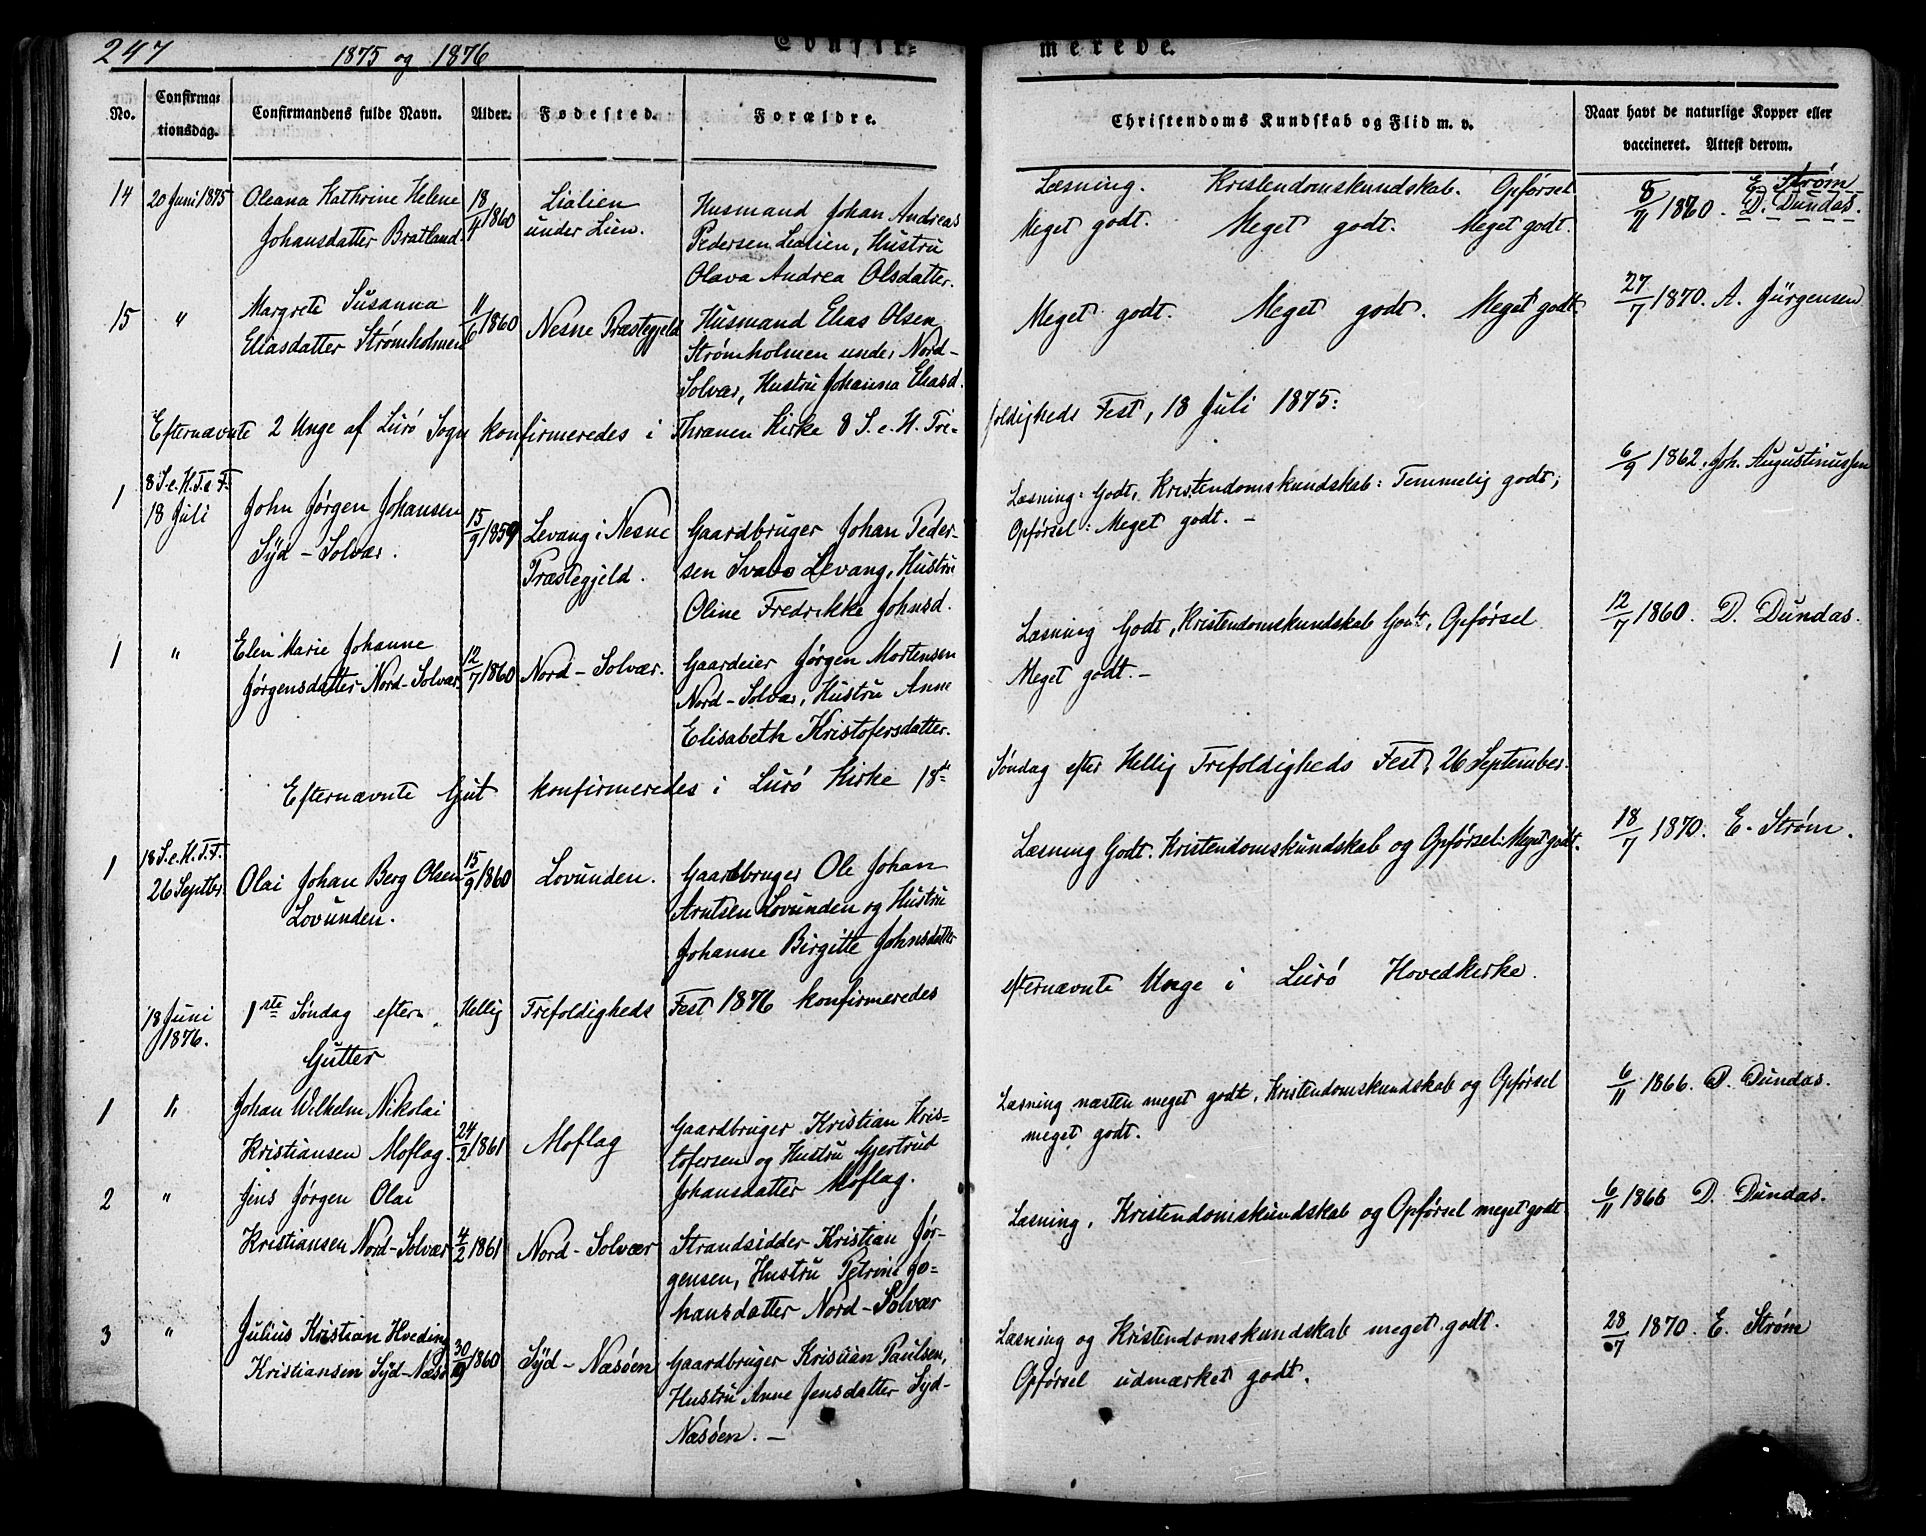 247
1875 og 1876
Confir=
merede.
No.
Confirma=
tionsdag.
Confirmandens fulde Navn.
Alder.
Fødested.
Forældre.
Christendoms Kundskab og Flid m. v.
Naar havt de naturlige Kopper eller
vaccineret. Attest derom.
14 20 Juni 1875 Oleana Kathrine Helene 18/4 1860 Lialien Husmand Johan Andreas
Johansdatter Bratland under Lien. Pedersen Lialien, Hustru
Olava Andrea Olsdatter.
Læsning. Kristendomskundskab. Opførsel
Meget godt. Meget godt. Meget godt.
8/11 1860. E. Strøm
D. Dundas.
15 " Margrete Susanna 11/6 1860 Nesne Præstegjeld Husmand Elias Olsen
Eliasdatter Strømholmen Strømholmen under Nord-
Solvær, Hustru Johanna Eliasd.
Meget godt. Meget godt. Meget godt.
27/7 1870. A. Jürgensen
Efternævnte 2 Unge af Lurö Sogn konfirmeredes i Thrænen Kirke 8 S. e. H. Tre-
foldigheds Fest, 18 Juli 1875:
1 8 S. e. H. T. F. John Jørgen Johansen 15/9 1859 Levang i Nesne Gaardbruger Johan Peder-
18 Juli Syd-Solvær. Præstegjeld. sen Levang, Hustru
Oline Fredrikke Johnsd.
Læsning: Godt, Kristendomskundskab: Temmelig godt;
Opførsel: Meget godt. -
6/9 1862. Joh. Augustinussen
1 " Elen Marie Johanne 12/7 1860 Nord-Solvær. Gaardeier Jørgen Mortensen
Jørgensdatter Nord-Solvær Nord-Solvær, Hustru Anne
Elisabeth Kristofersdatter.
Læsning Godt, Kristendomskundskab Godt, Opførsel
Meget godt. -
12/7 1860. D. Dundas.
Efternævnte Gut konfirmeredes i Lurö Kirke 18de
Søndag efter Hellig Trefoldigheds Fest, 26 September.
1 18 S. e. H. T. F. Olai Johan Berg Olsen 15/9 1860 Lovunden. Gaardbruger Ole Johan
26 Septbr Lovunden. Arntsen Lovunden og Hustru
Johanne Birgitte Johnsdatter
Læsning Godt. Kristendomskundskab og Opførsel: Meget godt.
18/7 1870. E. Strøm.
18 Juni 1ste Søndag efter Hellig Trefoldigheds Fest 1876 konfirmeredes
1876.
efternævnte Unge i Lurö Hovedkirke.
Gutter
1 " Johan Wilhelm Nikolai Gaardbruger Kristian Kris-
Kristiansen Moflag. 24/2 1861 Moflag tofersen og Hustru Gjertrud
Johansdatter Moflag.
Læsning næsten meget godt, Kristendomskundskab og Opførsel
meget godt.
6/11 1866. D. Dundas.
2 " Jens Jørgen Olai
Kristiansen Nord-Solvær 4/2 1861 Nord-Solvær Strandsidder Kristian Jør-
gensen, Hustru Petrine Jo-
hansdatter Nord-Solvær
Læsning, Kristendomskundskab og Opførsel meget godt
6/11 1866 D. Dundas.
3 " Julius Kristian Hveding
Kristiansen Syd-Næsø 1860 Syd-Næsøen Gaardbruger Kristian Paulsen,
Hustru Anne Jensdatter Syd-
Næsøen. -
Læsning og Kristendomskundskab meget godt.
Opførsel udmærket godt.
28/7 1870. E. Strøm